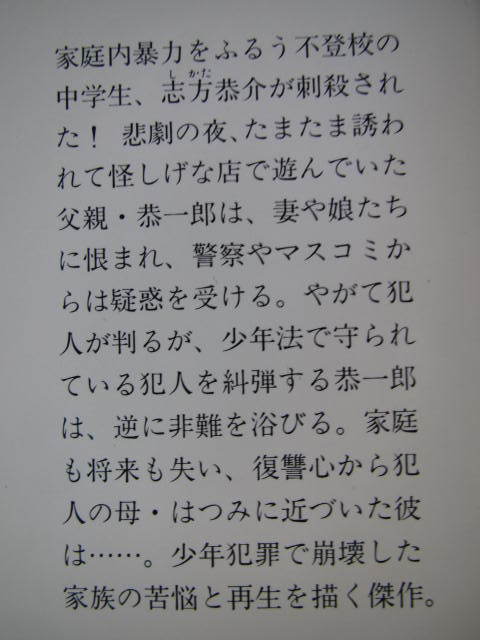 家庭内暴力をふるう不登校の
中学生、志方恭介が刺殺され
た！ 悲劇の夜、たまたま誘わ
れて怪しげな店で遊んでいた
父親・恭一郎は、妻や娘たち
に恨まれ、警察やマスコミか
らは疑惑を受ける。やがて犯
人が判るが、少年法で守られ
ている犯人を糾弾する恭一郎
は、逆に非難を浴びる。家庭
も将来も失い、復讐心から犯
人の母・はつみに近づいた彼
は……。少年犯罪で崩壊した
家族の苦悩と再生を描く傑作。